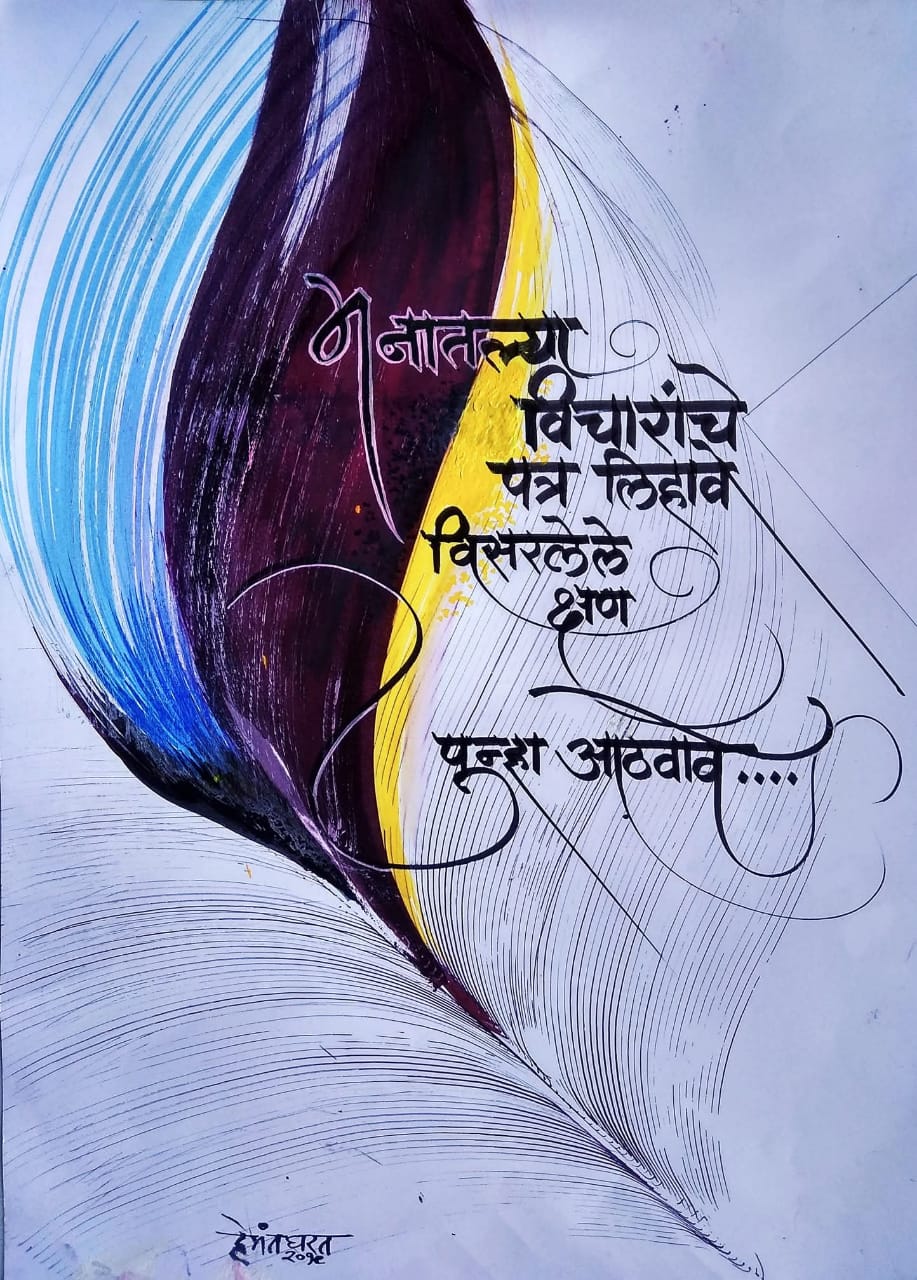 मनातल्या
विचारांचे
पत्र लिहावे
विसरलेले
क्षण
पून्हा आठवावे....
हेमंत घरत
२०१९